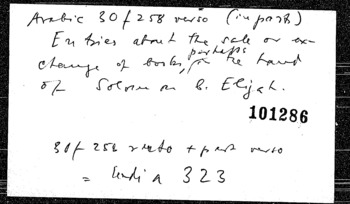 Arabic 30 f 258 verso (in part)
Entries about the sale or ex-
change of books, perhaps in the hand
of Solomon b. Elijah.
101286
30f 258 recto + part verso
= India 323